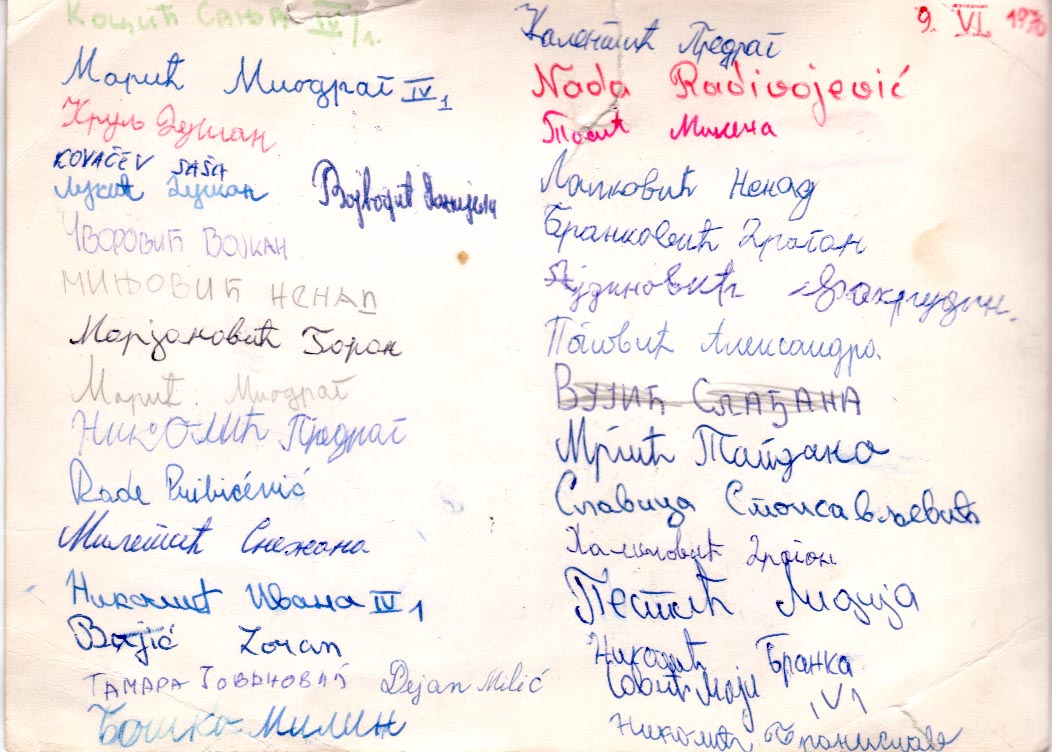 Кощић Сања IV/1.
Марић Миодраг IV1
Круљ Душан
KOVAČEV SAŠA
Лукић Душан
Војводић Данијели
Чворовић Војкан
Мињовић Ненад
Марјановић Горан
Марић Миодраг
Николић Предраг
Rade Pribićević
Милетић Снежана
Николић Ивана IV1
Vajić Zoran
Тамара Јовановић
Dejan Milić
Бошко Милин
9. VI. 1976
Калентић Предраг
Nada Radivojević
Тосић Милена
Лапковић Ненад
Бранковић Драган
Аџиновић Фахрудин.
Паловић Александра.
Вујић Слађана
Мргић Тајдана
Славица Стоисављевић
Халиловић Драган
Пестић Лидија
Николић Бранка
IV1
Николић Бранислав